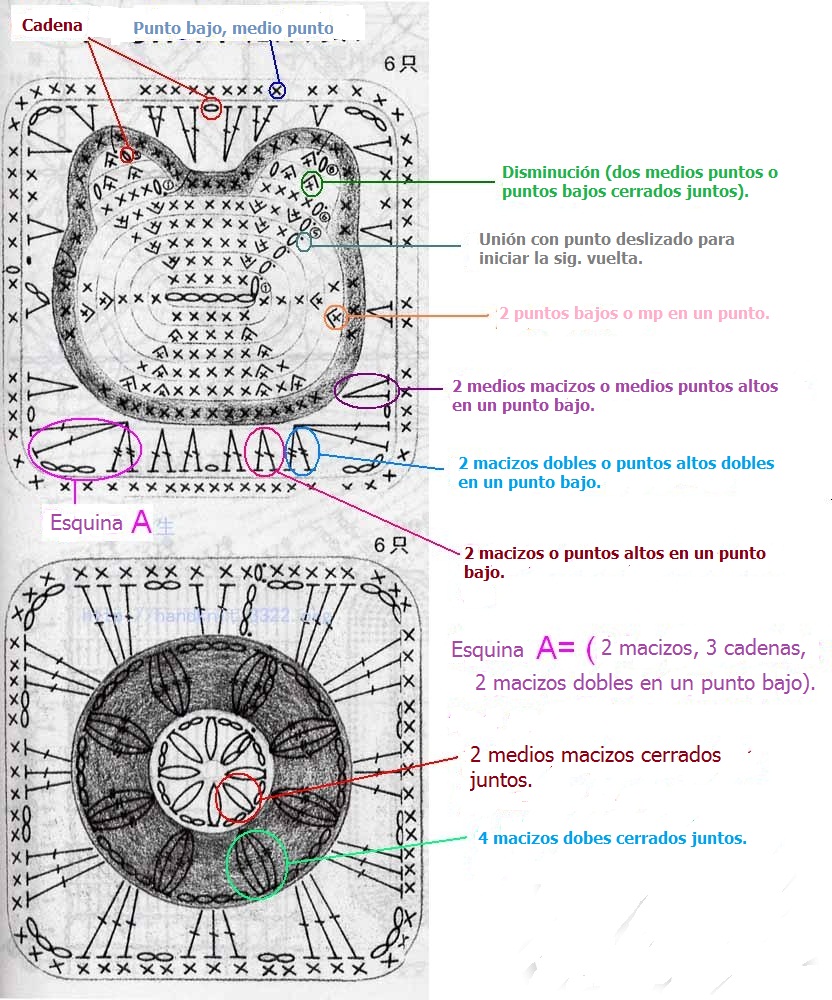 Cadena
Punto bajo, medio punto
6只
Disminución (dos medios puntos o
puntos bajos cerrados juntos).
Unión con punto deslizado para
iniciar la sig. vuelta.
2 puntos bajos o mp en un punto.
2 medios macizos o medios puntos altos
en un punto bajo.
2 macizos dobles o puntos altos dobles
en un punto bajo.
Esquina A生
6只
2 macizos o puntos altos en un punto
bajo.
Esquina A= ( 2 macizos, 3 cadenas,
2 macizos dobles en un punto bajo).
2 medios macizos cerrados
juntos.
4 macizos dobes cerrados juntos.